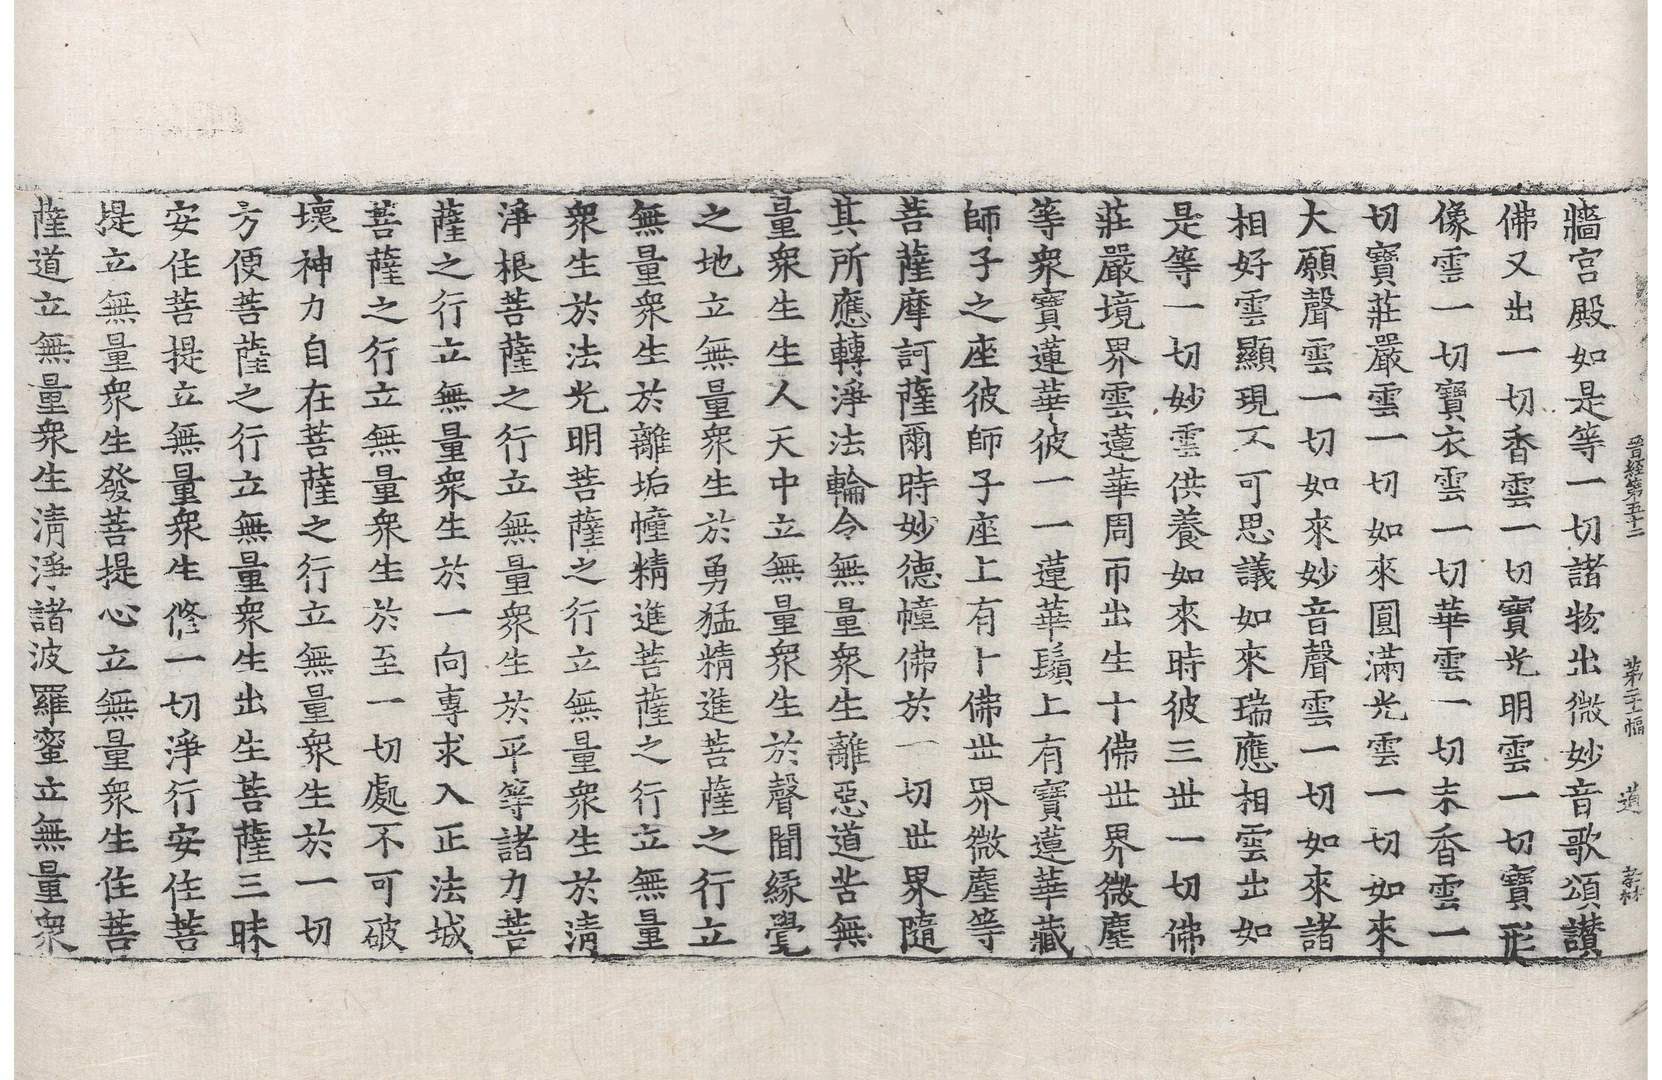 晉経第五十二 第二十幅 道
牆宮殿如是等一切諸物出微妙音歌頌讃
佛又出一切香雲一切寶光明雲一切寶形
像雲一切寶衣雲一切華雲一切末香雲一
切寶莊嚴雲一切如來圓滿光雲一切如來
大願聲雲一切如來妙音聲雲一切如來諸
相好雲顯現不可思議如來瑞應相雲出如
是等一切妙雲供養如來時彼三世一切佛
莊嚴境界雲蓮華周帀出生十佛世界微塵
等衆寶蓮華彼一一蓮華鬚上有寶蓮華藏
師子之座彼師子座上有十佛世界微塵等
菩薩摩訶薩爾時妙德幢佛於一切世界隨
其所應轉淨法輪令無量衆生離惡道苦無
量衆生生人天中立無量衆生於聲聞緣覺
之地立無量衆生於勇猛精進菩薩之行立
無量衆生於離垢幢精進菩薩之行立無量
衆生於法光明菩薩之行立無量衆生於清
淨根菩薩之行立無量衆生於平等諸力菩
薩之行立無量衆生於一向專求入正法城
菩薩之行立無量衆生於至一切處不可破
壞神力自在菩薩之行立無量衆生於一切
方便菩薩之行立無量衆生出生菩薩三昧
安住菩提立無量衆生修一切淨行安住菩
提立無量衆生發菩提心立無量衆生住菩
薩道立無量衆生清淨諸波羅蜜立無量衆